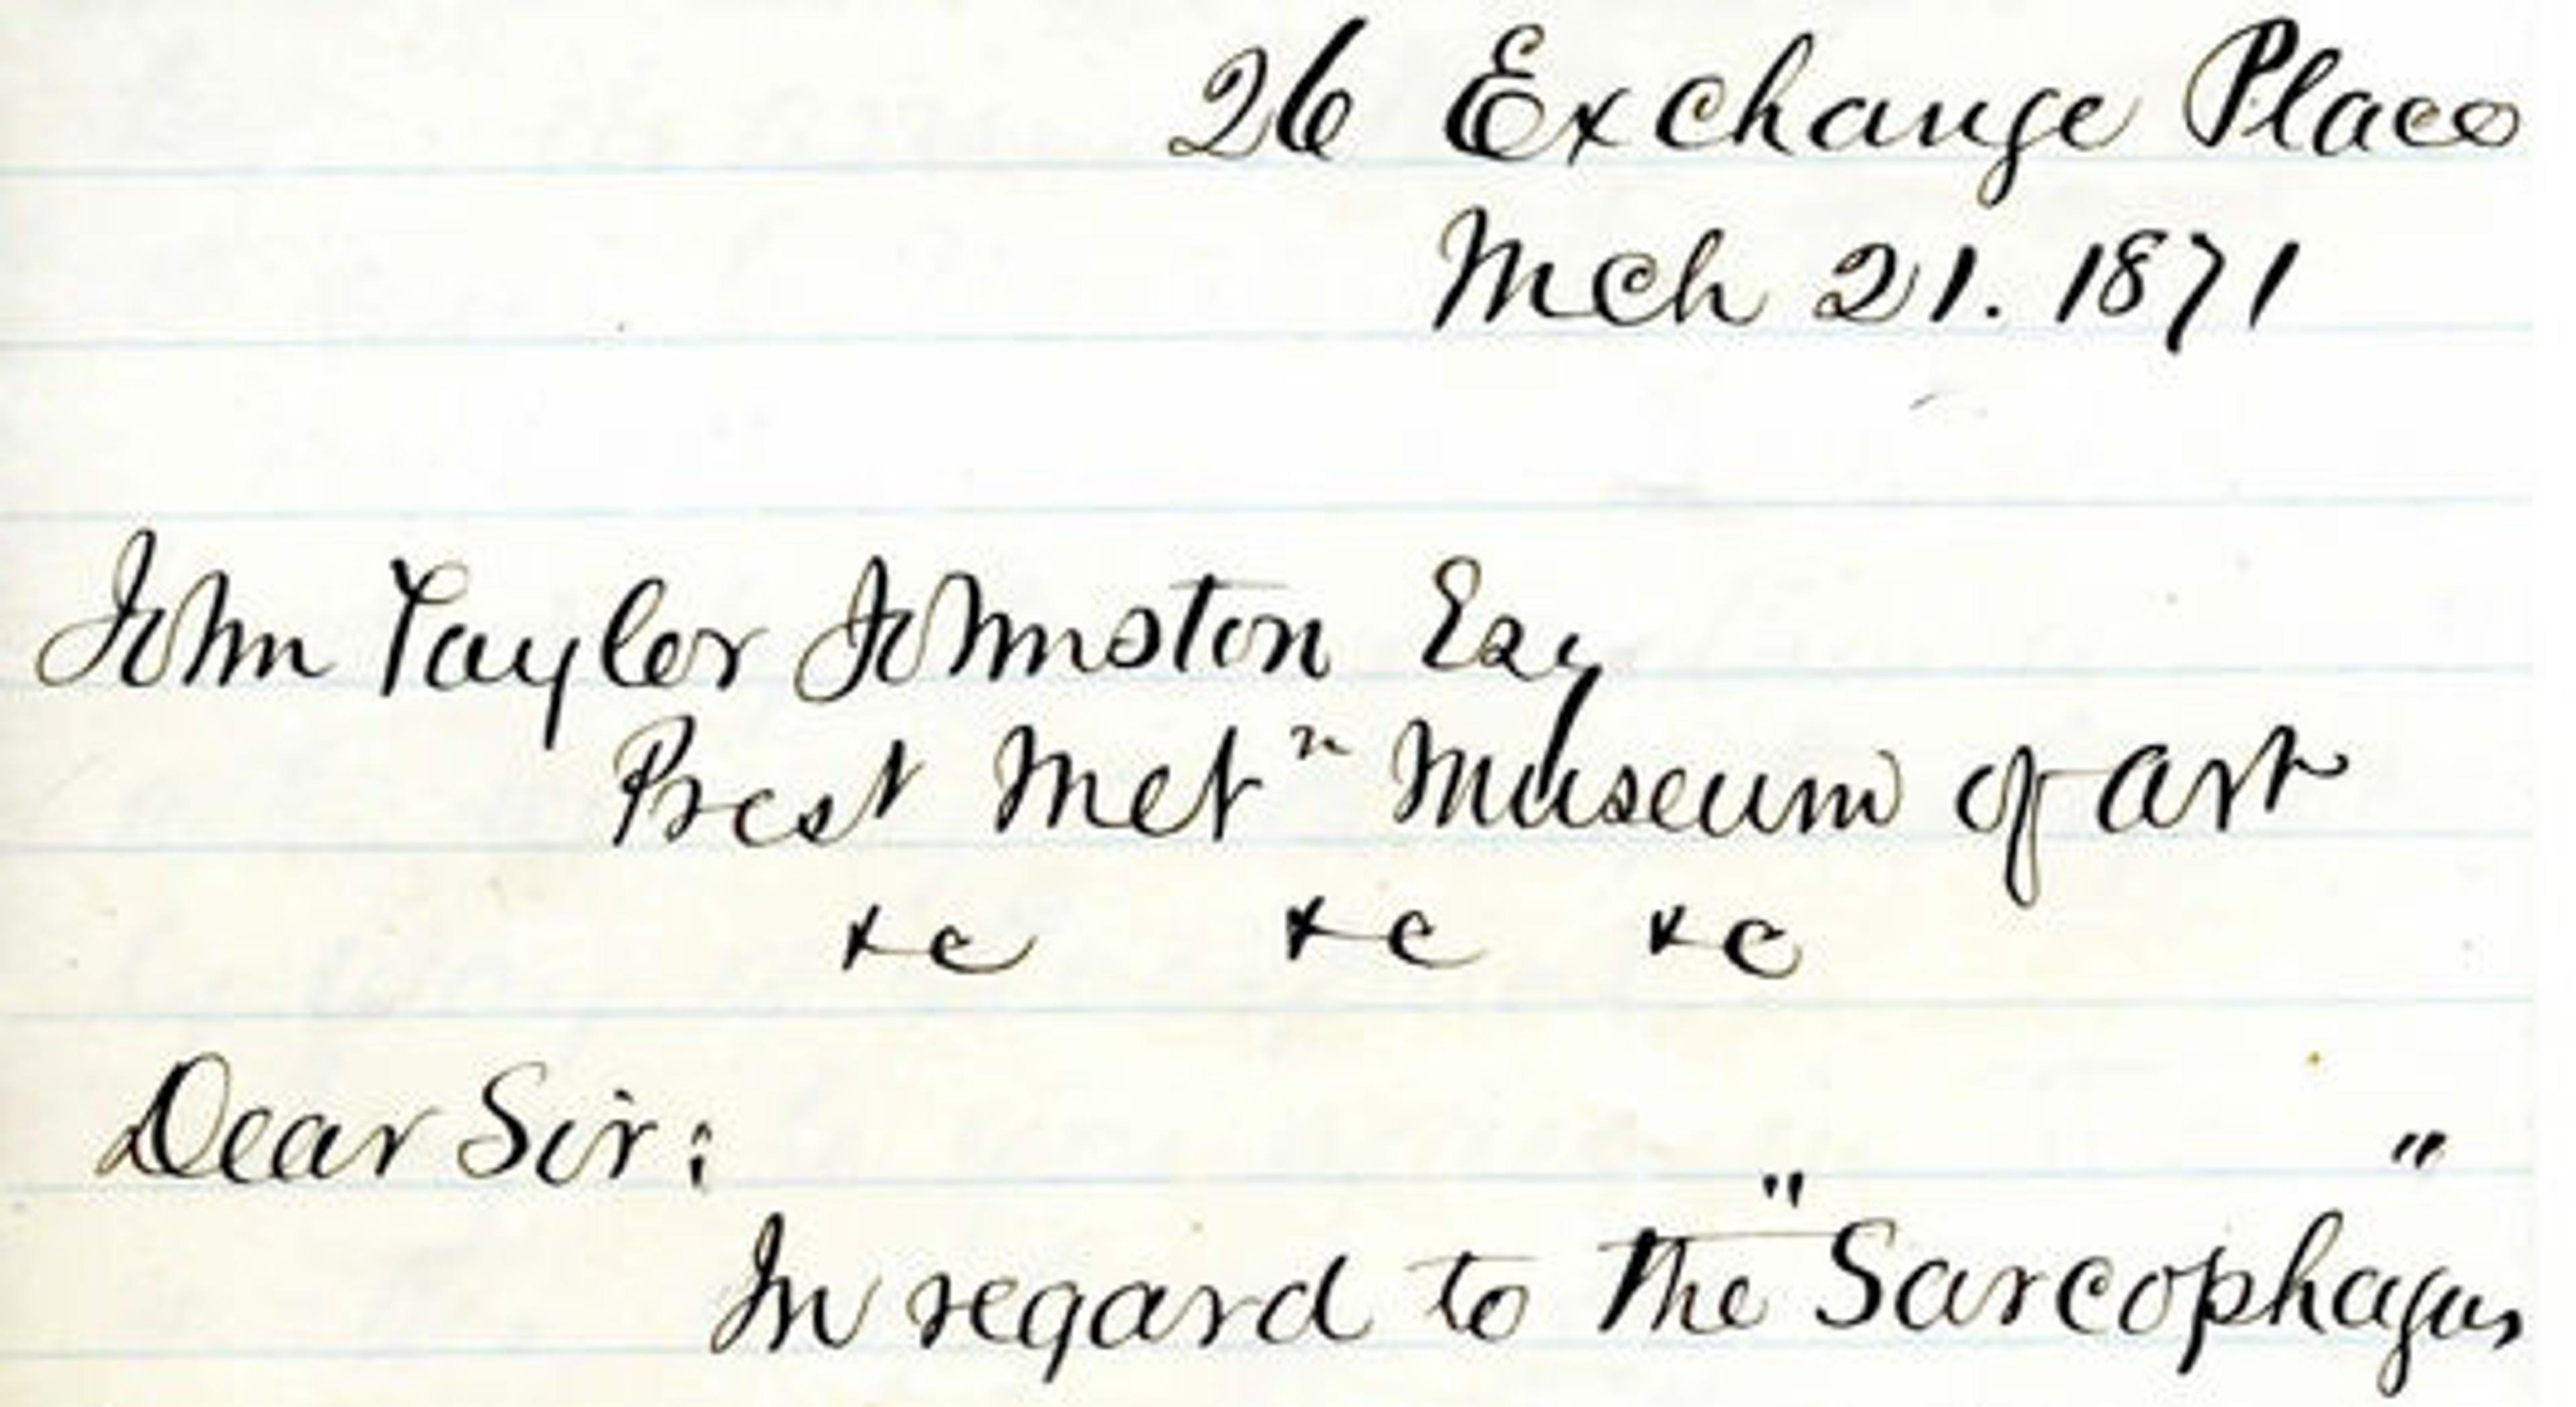 26 Exchange Place
Mch 21. 1871
John Taylor Johnston Esq
Prest Metⁿ Museum of Art
&c &c &c
Dear Sir:
In regard to the "Sarcophagus"